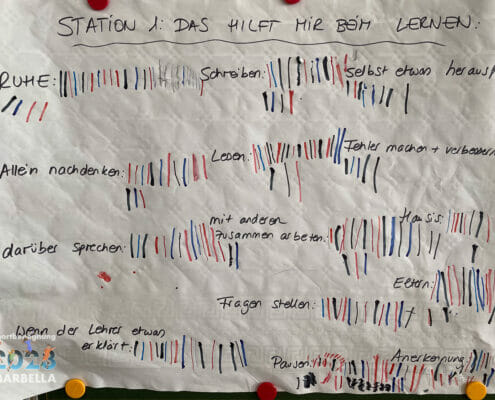 STATION 1: DAS HILFT MIR BEIM LERNEN:
RUHE:
Schreiben:
Selbst etwas herausf
Allein nachdenken:
Lesen:
Fehler machen + verbessern
darüber sprechen:
mit anderen
zusammen arbeiten:
Eltern:
Fragen stellen:
Wenn der Lehrer etwas
erklärt:
Pausen:
Anerkennung:
2023
MARBELLA